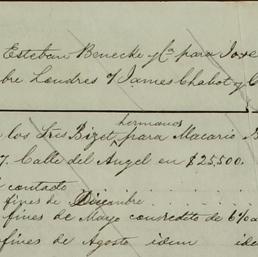 Esteban Benecke y Ca. para Jose
bre Londres s/ James Chabot y C
los Sres Bizet hermanos para Macario
7. Calle del Angel en $25,500.
contado
fines de Diciembre
fines de Mayo con redito de 6%
fines de Agosto idem ide